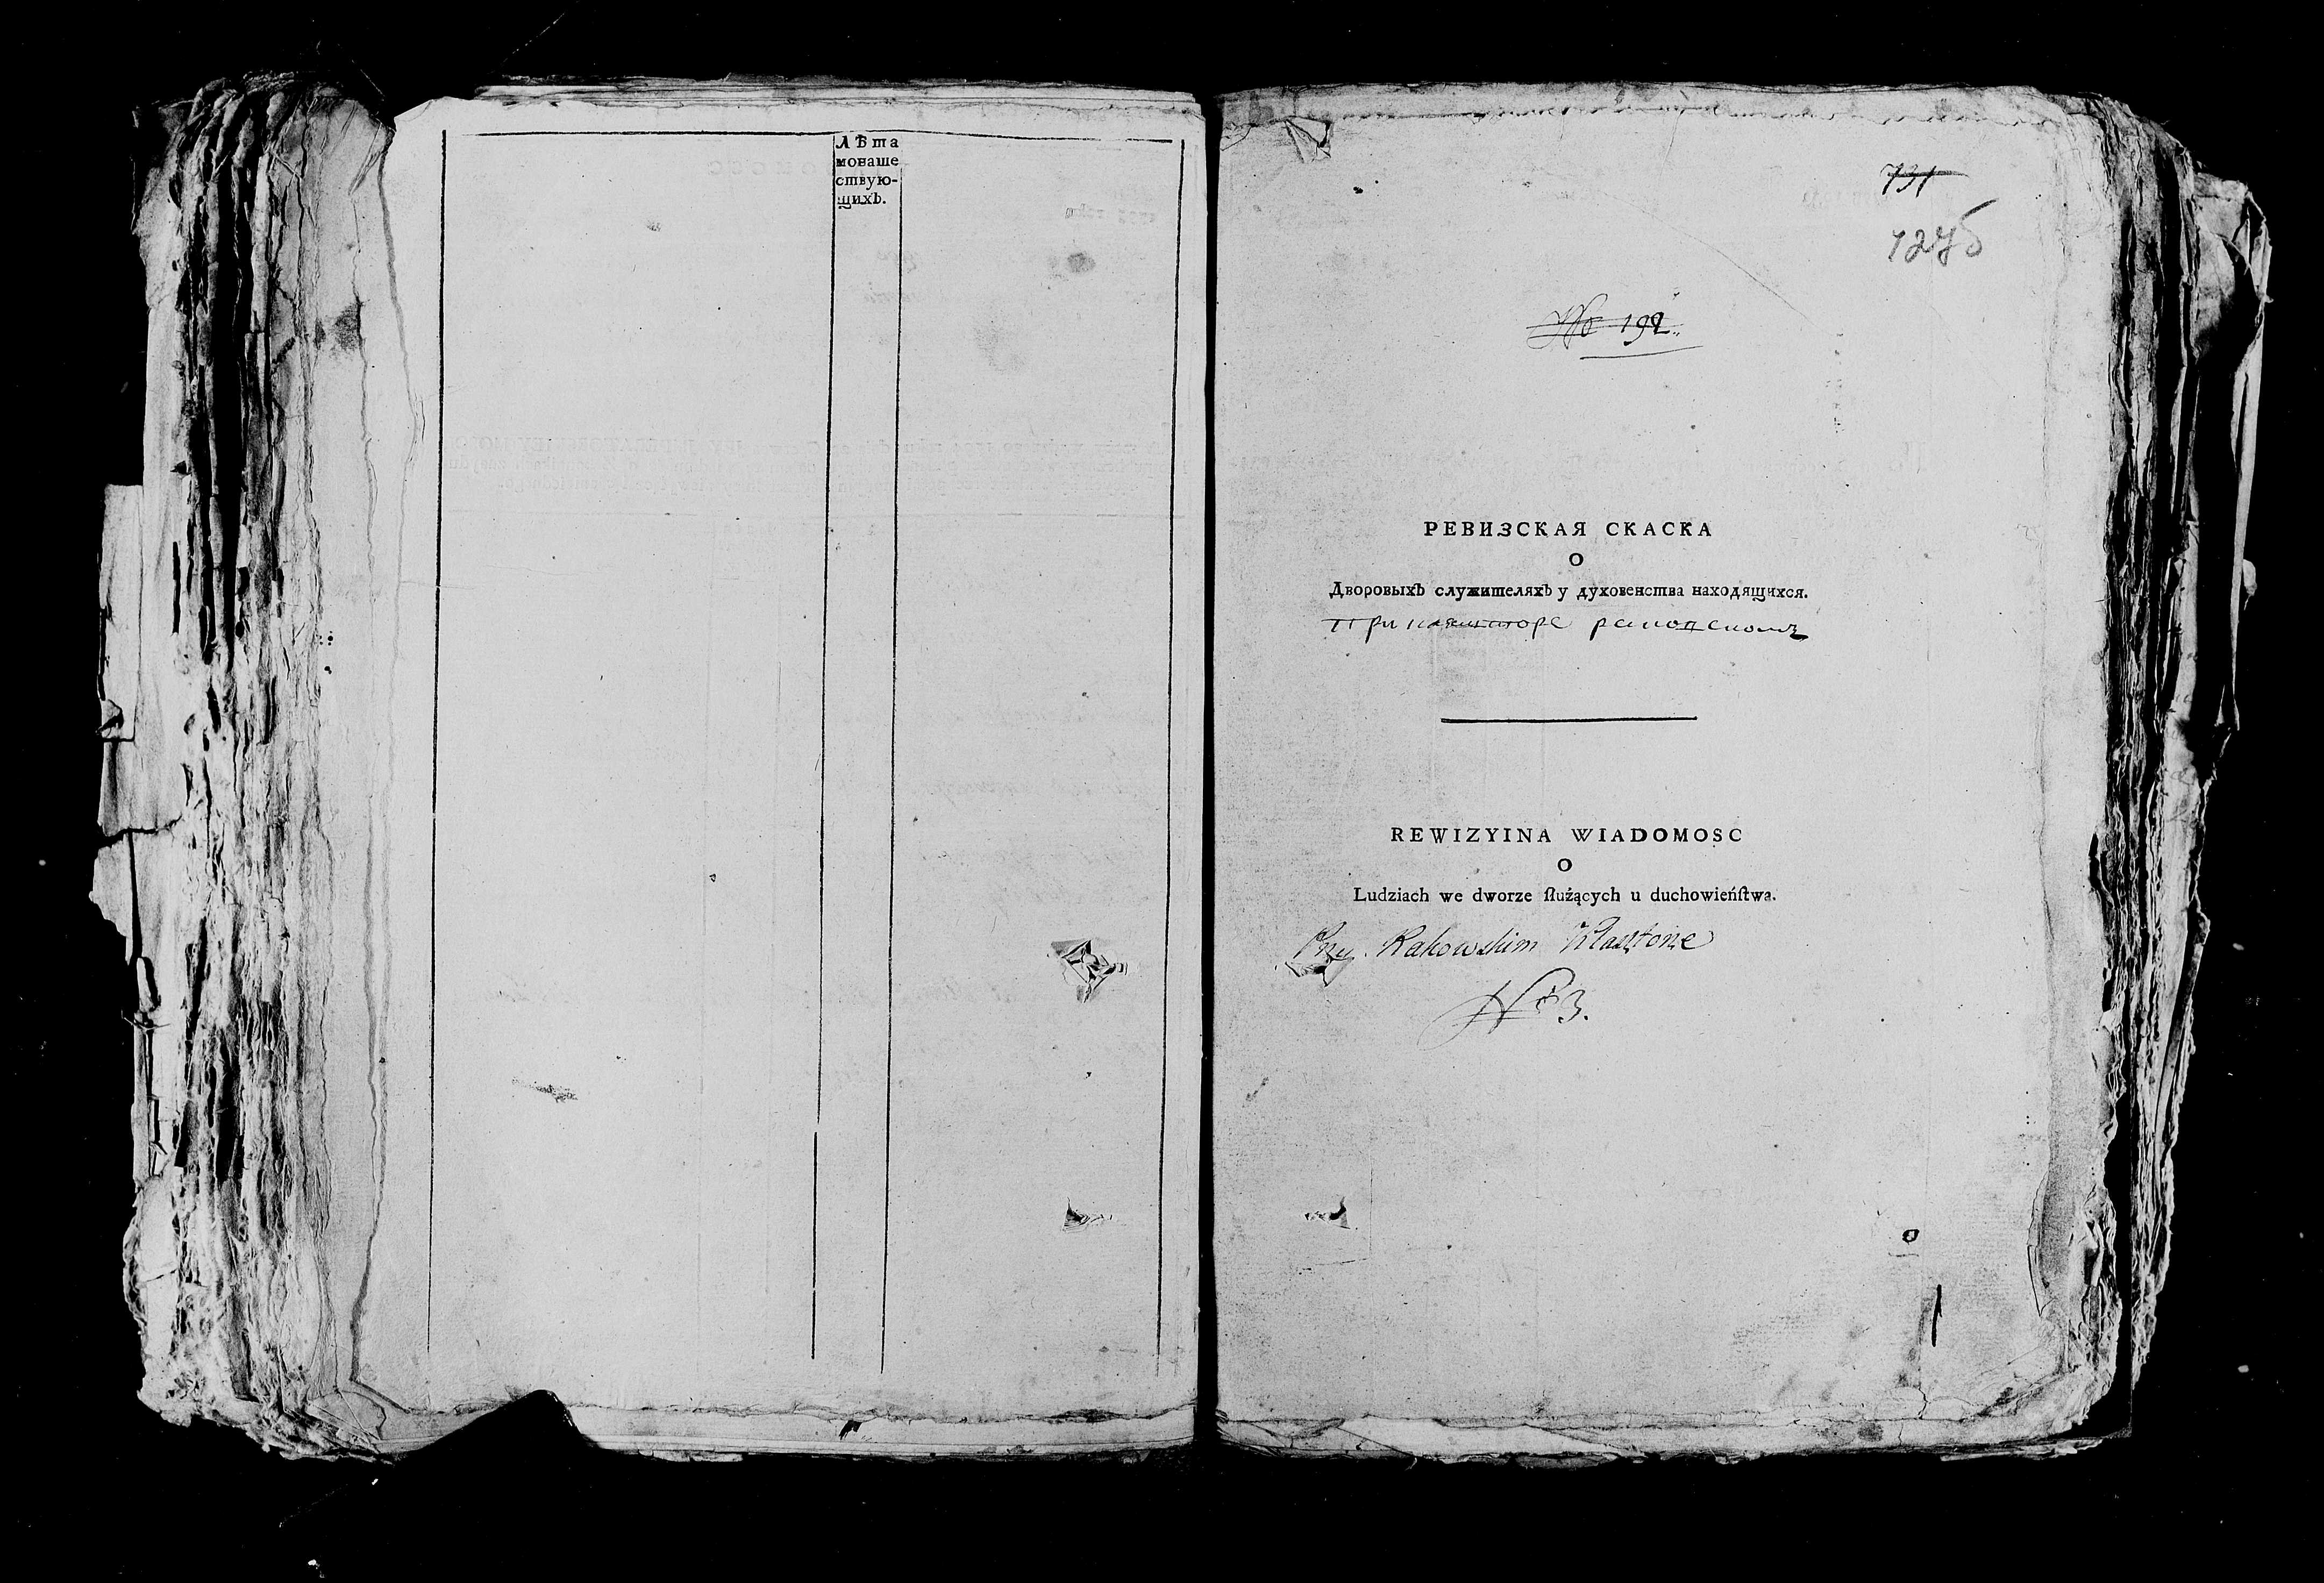 Лѣта
монаше
ствую-
щихЪ.
731
1275
No 192.
РЕВИЗСКАЯ СКАСКА
О
ДворовыхЪ служителяхЪ у духовенства находящихся.
При кляшторе раковскомъ
REWIZYINA WIADOMOSC
O
Ludziach we dworze ſłużących u duchowieńſtwa.
Przy Rakowskim Klasztorze
No 3.